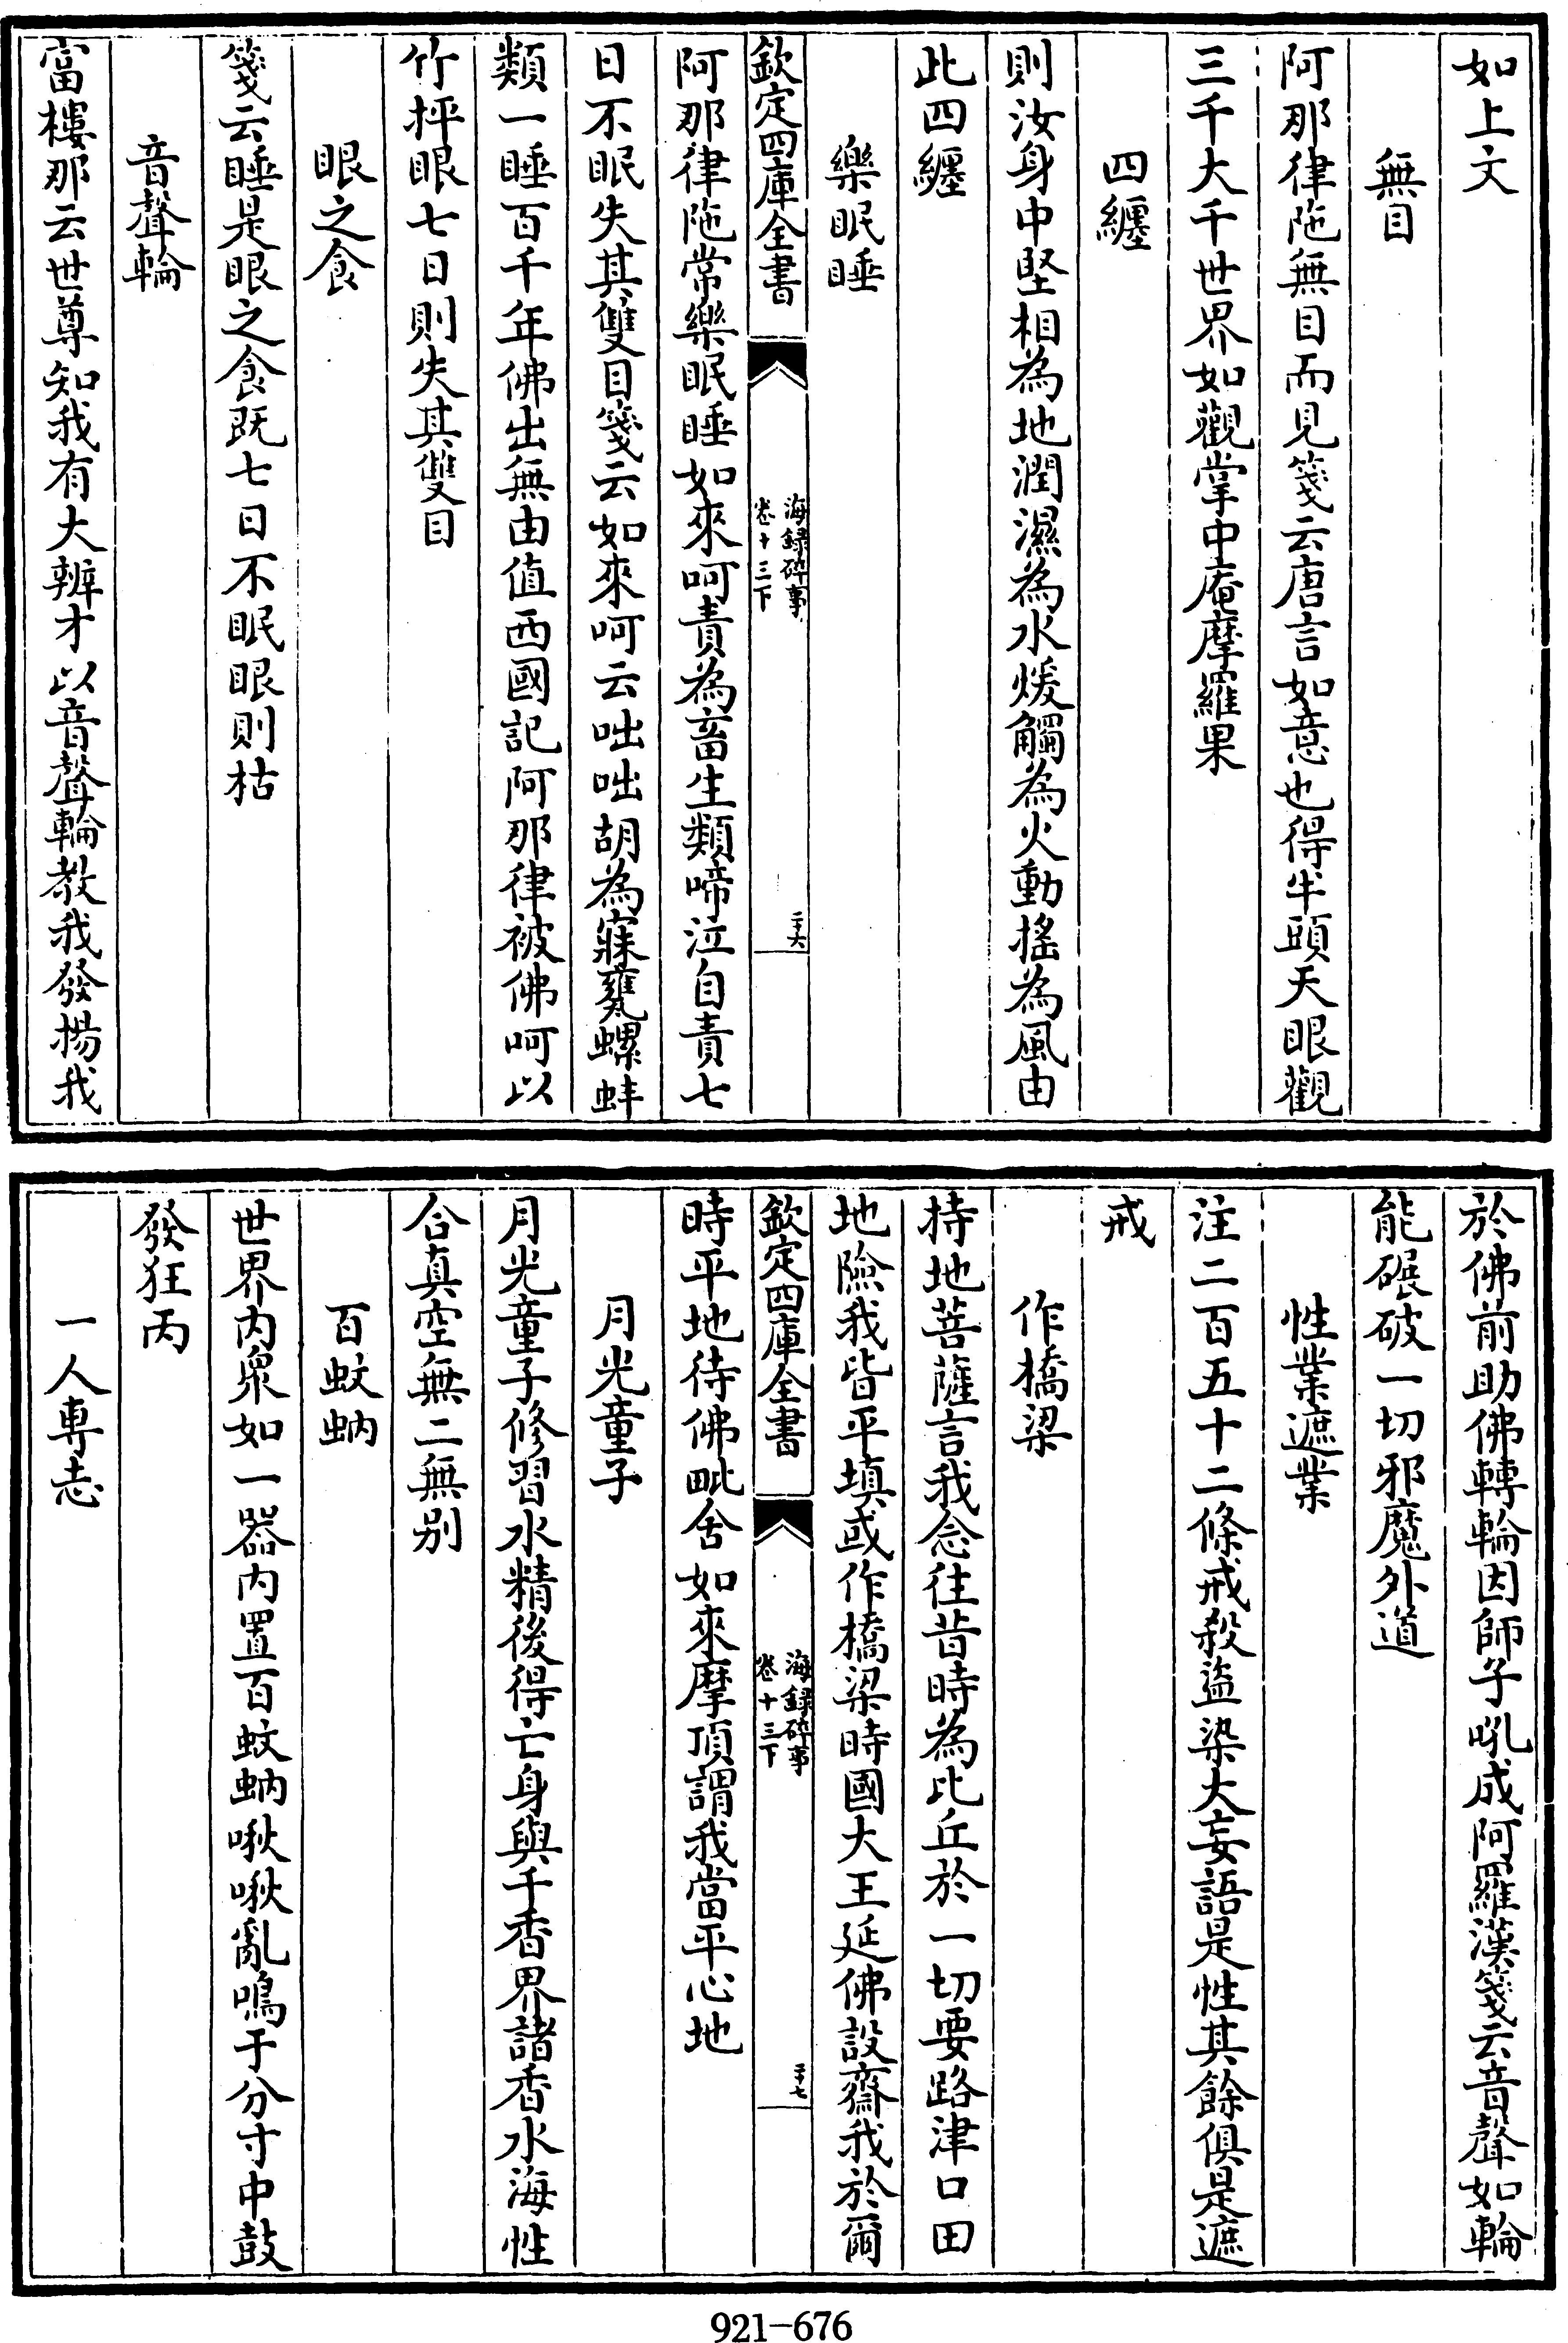 如上文
無目
阿那律陁無目而見箋云唐言如意也得半頭天眼觀
三千大千世界如觀掌中庵摩羅果
四纒
則汝身中堅相為地潤濕為水煖觸為火動搖為風由
此四纒
樂眠睡
欽定四庫全書
海録碎事
卷十三下
二十六
阿那律陁常樂眠睡如來呵責為畜生類啼泣自責七
日不眠失其雙目箋云如來呵云咄咄胡為寐甕螺蚌
類一睡百千年佛出無由值西國記阿那律被佛呵以
竹抨眼七日則失其雙目
眼之食
箋云睡是眼之食既七日不眠眼則枯
音聲輪
富樓那云世尊知我有大辨才以音聲輪教我發揚我
於佛前助佛轉輪因師子吼成阿羅漢箋云音聲如輪
能碾破一切邪魔外道
性業遮業
注二百五十二條戒殺盗染大妄語是性其餘俱是遮
戒
作橋梁
持地菩薩言我念往昔時為比丘於一切要路津口田
地險我皆平填或作橋梁時國大王延佛設齋我於爾
欽定四庫全書
海録碎事
卷十三下
二十七
時平地待佛毗舍如來摩頂謂我當平心地
月光童子
月光童子修習水精後得亡身與千香界諸香水海性
合真空無二無别
百蚊蚋
世界内衆如一器内置百蚊蚋啾啾亂鳴于分寸中鼓
發狂丙
一人専志
921-676